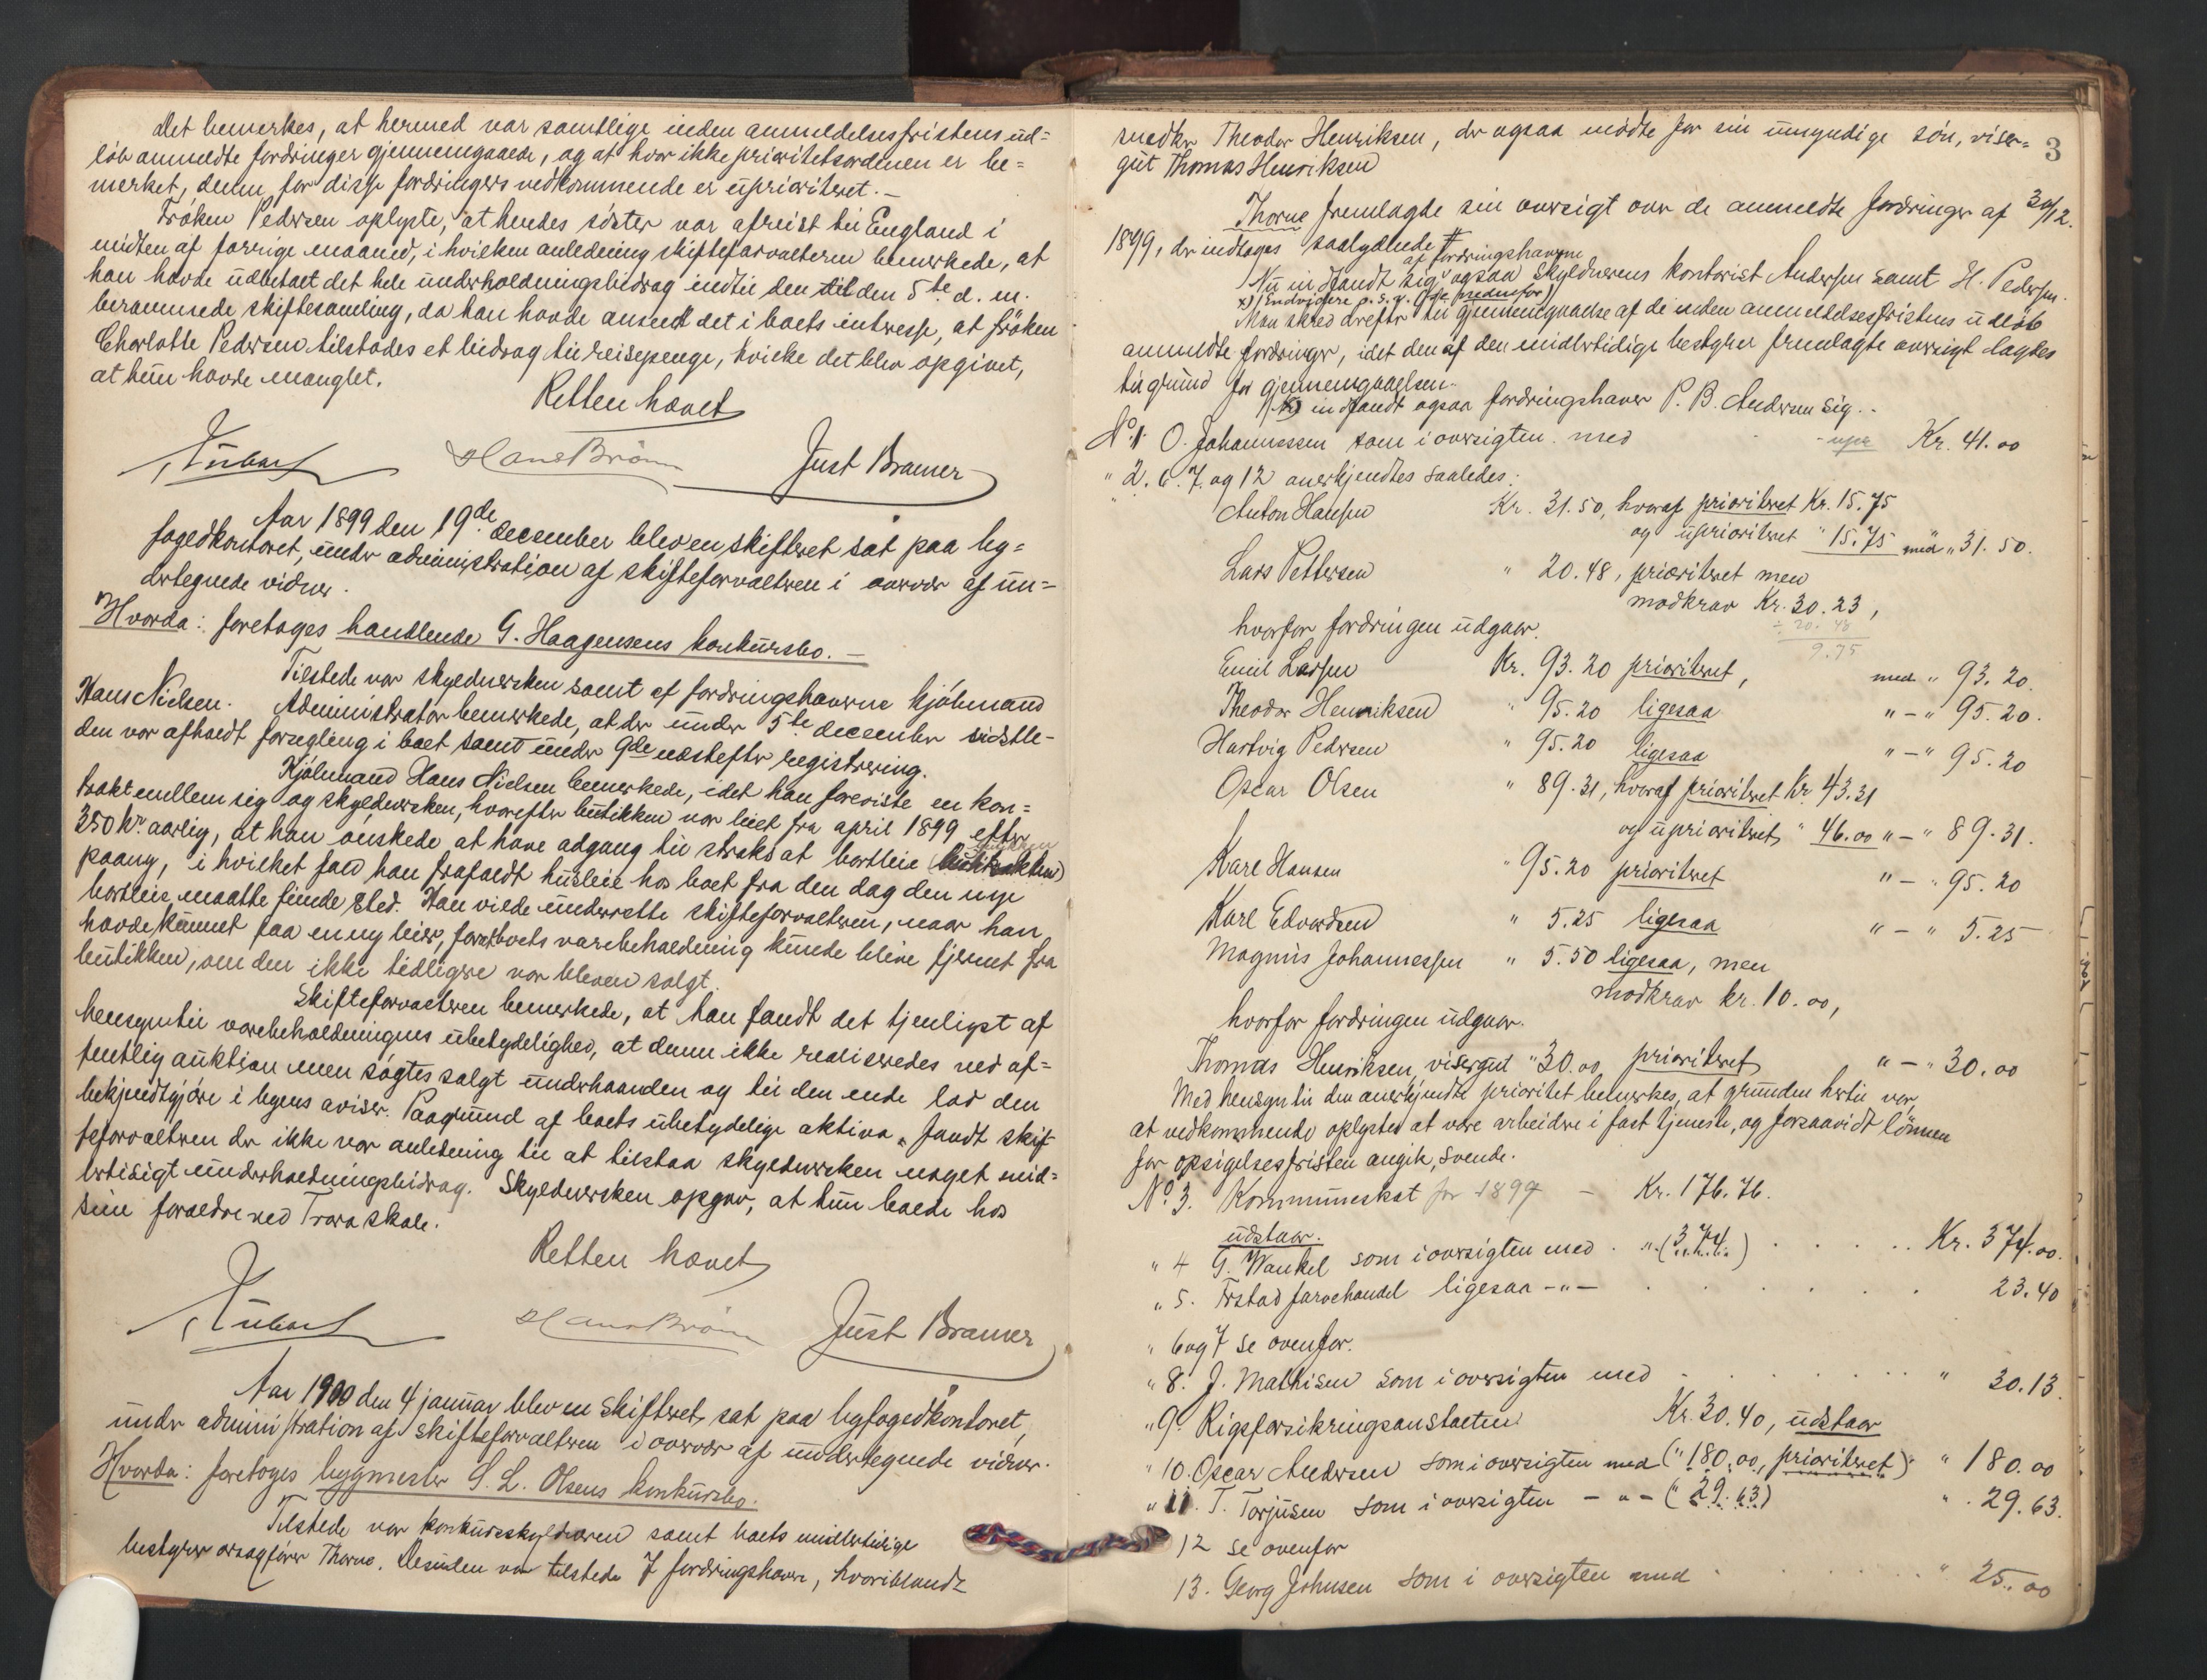 Det bemerkes, at hermed var samtlige inden anmeldelsesfristens ud=
løb anmeldte fordringer gjennemgaaede, og at hvor ikke prioritetsordenen er be=
merket, denne for disse fordringers vedkommende er uprioriteret. —
Frøken Pedersen oplyste, at hendes søster var afreist til England i
midten af forrige maaned, i hvilken anledning skifteforvalteren bemerkede, at
han havde udbetalt det hele underholdningsbidrag indtil den til den 5te d. m.
berammede skiftesamling, da han havde anseet det i boets interesse, at frøken
Charlotte Pedersen tilstodes et bidrag til reisepenge, hvilke det blev opgivet,
at hun havde manglet.
Retten hævet
Hans Brønn Just Bramer
Aar 1899 den 19de december blev en skifteret sat paa by=
fogedkontoret, under administration af skifteforvalteren i overvær af un=
dertegnede vidner.
Hvorda: foretoges handlende G. Haagensens konkursbo. —
Tilstede var skyldnersken samt af fordringshaverne kjøbmand
Hans Nielsen. Administrator bemerkede, at der under 5te december sidstle-
den var afholdt forsegling i boet samt under 9de næstefter registrering.
Kjøbmand Hans Nielsen bemerkede, idet han foreviste en kon=
trakt mellem sig og skyldnersken, hvorefter butikken var leiet fra april 1899 efter
350 kr. aarlig, at han ønskede at have adgang til straks at bortleie butikken
paany, i hvilket fald han frafaldt husleie hos boet fra den dag den nye
bortleie maatte finde sted. Han vilde underrette skifteforvalteren, naar han
havde kunnet faa en ny leier, forat boets varebeholdning kunde blive fjernet fra
butikken, om den ikke tidligere var bleven solgt.
Skifteforvalteren bemerkede, at han fandt det tjenligst af
hensyn til varebeholdningens ubetydelighed, at denne ikke realiseredes ved of=
fentlig auktion men søgtes solgt underhaanden og til den ende lod den
bekjendtgjøre i byens aviser. Paagrund af boets ubetydelige aktiva fandt skif
teforvalteren der ikke var anledning til at tilstaa skyldnersken noget mid=
lertidigt underholdningsbidrag. Skyldnersken opgav, at hun boede hos
sine forældre ved Trara skole.
Retten hævet
Hans Brønn Just Bramer
Aar 1900 den 4 januar blev en skifteret sat paa byfogedkontoret,
under administration af skifteforvalteren i overvær af undertegnede vidner.
Hvorda: foretoges bygmester S. L. Olsens konkursbo.
Tilstede var konkursskyldneren samt boets midlertidige
bestyrer orsagfører Thorne. Desuden var tilstede 7 fordringshavere, hvoriblandt
3
snedker Theodor Henriksen, der ogsaa mødte for sin umyndige søn, viser=
gut Thomas Henriksen
Thorne fremlagte sin oversigt over de anmeldte fordringer af 30/12.
1899, der indtages saalydende #
af fordringshavere
Nu indfandt sig ogsaa skyldnerens kontorist Andersen samt H. Pedersen.
x) Endvidere p. s. v. (se nedenfor)
Man skred derefter til gjennemgaaelse af de inden anmeldelsesfristens udløb
anmeldte fordringer, idet den af den midlertidige bestyrer fremlagte oversigt lagdes
til grund for gjennemgaaelsen.
x) indfandt ogsaa fordringshaver P. B. Andersen sig. -
No. 1 O. Johannessen som i oversigten med - upr Kr. 41.00
" 2. 6. 7. og 12 anerkjendtes saaledes:
Anton Hansen Kr. 31.50, hvoraf prioriteret Kr. 15.75
og uprioriteret " 15.75 med " 31.50.
Lars Pettersen " 20.48, prioriteret men
modkrav Kr. 30.23,
÷ 20.48
hvorfor fordringen udgaar.
9.75
Emil Larsen Kr. 93.20 prioriteret, med " 93.20.
Theodor Henriksen " 95.20 ligesaa " — " 95.20.
Hartvig Pedersen " 95.20 ligesaa " — " 95.20
Oscar Olsen " 89.31, hvoraf prioriteret Kr. 43.31
og uprioriteret " 46.00 " — " 89.31.
Karl Hansen " 95.20 prioriteret " — " 95.20
Karl Edvardsen " 5.25 ligesaa " — " 5.25
Magnus Johannessen " 5.50 ligesaa, men
modkrav kr. 10.00,
hvorfor fordringen udgaar.
Thomas Henriksen, visergut " 30.00 prioriteret " — " 30.00
Med hensyn til den anerkjendte prioritet bemerkes, at grunden hertil var,
at vedkommende oplystes at være arbeidere i fast tjeneste, og forsaavidt lønnen
for opsigelsesfristen angik, svende.
No. 3. Kommuneskat for 1899 — Kr. 176.76.
udstaar.
" 4 G. Wankel som i oversigten med . ". (374.) . . . . Kr. 374.00.
" 5. Ørstad farvehandel ligesaa - " - . . . . . 23.40
" 6 og 7 se ovenfor.
" 8. J. Mathisen som i oversigten med . . . . . " 30.13.
" 9. Rigsforsikringsanstalten Kr. 30.40, udstaar
" 10. Oscar Andersen som i oversigten med (" 180.00, prioriteret) " 180.00
" 11. T. Torjusen som i oversigten - " - (" 29.63) " 29.63.
12 se ovenfor
13. Georg Johnsen som i oversigten med . . . . . " 25.00